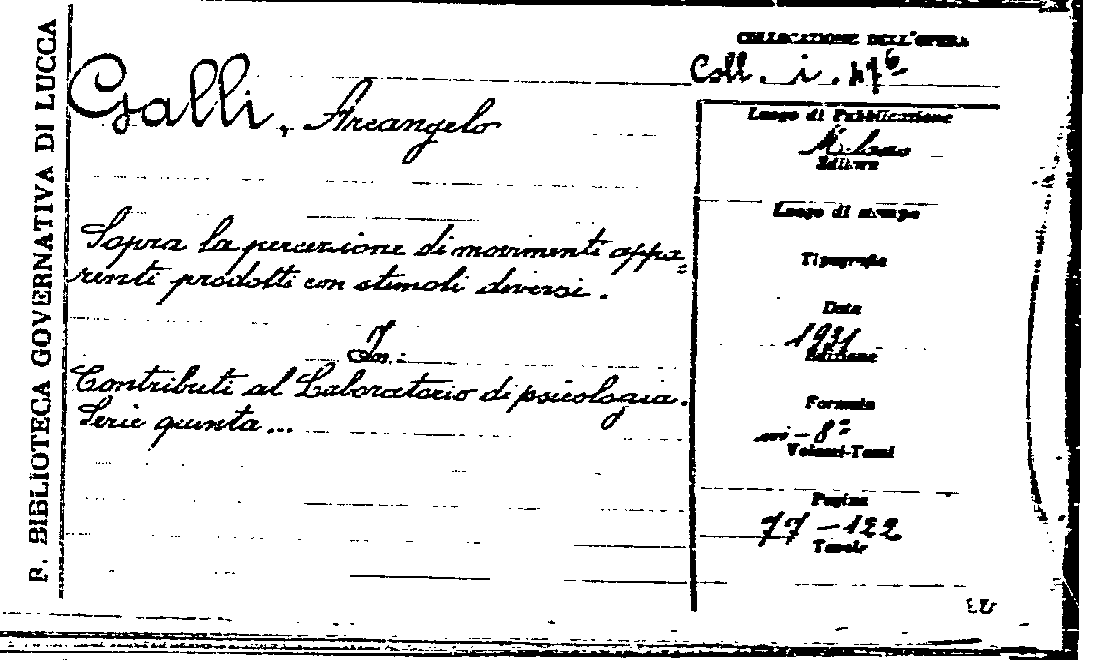 R. BIBLIOTECA GOVERNATIVA DI LUCCA
COLLOCAZIONE DELL'OPERA
Coll. i.
Galli, Arcangelo
Sopra la percezione di movimenti appa=
renti prodotti con stimoli diversi.
In:
Contributi al Laboratorio di psicologia.
Serie quinta...
Luogo di Pubblicazione
Milano
Editore
Luogo di stampa
Tipografia
Data
1931
Edizione
Formato
in-8°
Volumi-Tomi
Pagine
77-122
Tavole